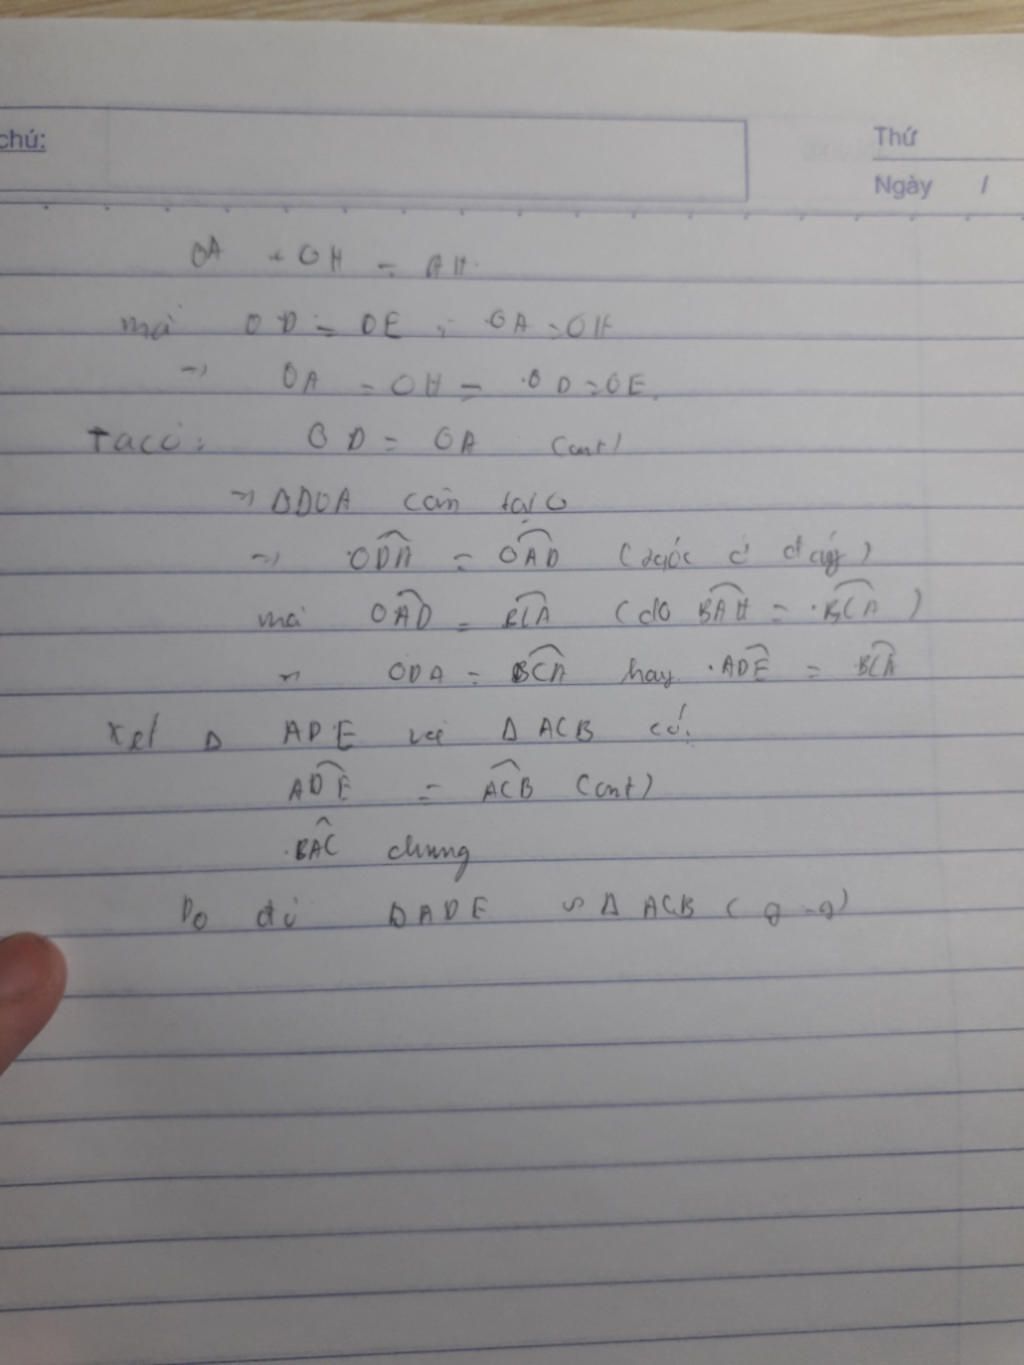 chú:
Thứ
Ngày /
OA + OH = AH.
mà OD = OE ; OA = OH
→ OA = OH = OD = OE.
Ta có: OD = OA (cmt)
→ ΔDOA cân tại O
→ \widehat{ODA} = \widehat{OAD} (2 góc ở đáy)
mà \widehat{OAD} = \widehat{BCA} (do \widehat{BAH} = \widehat{BCA})
→ ODA = \widehat{BCA} hay \widehat{ADE} = \widehat{BCA}
Xét Δ ADE và Δ ACB có:
\widehat{ADE} = \widehat{ACB} (cmt)
\widehat{BAC} chung
Do đó ΔADE ∽ Δ ACB (g-g)